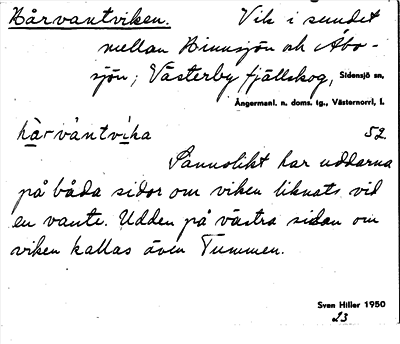 Hårvantviken. Vik i sundet
mellan Binnsjön och Åbo-
sjön; Västerby fjällskog, Sidensjö sn,
Ångermanl. n. doms. tg., Västernorrl. l.
hårvantvika 52.
Sannolikt har uddarna
på båda sidor om viken liknats vid
en vante. Udden på västra sidan om
viken kallas även Tummen.
Sven Hiller 1950
23